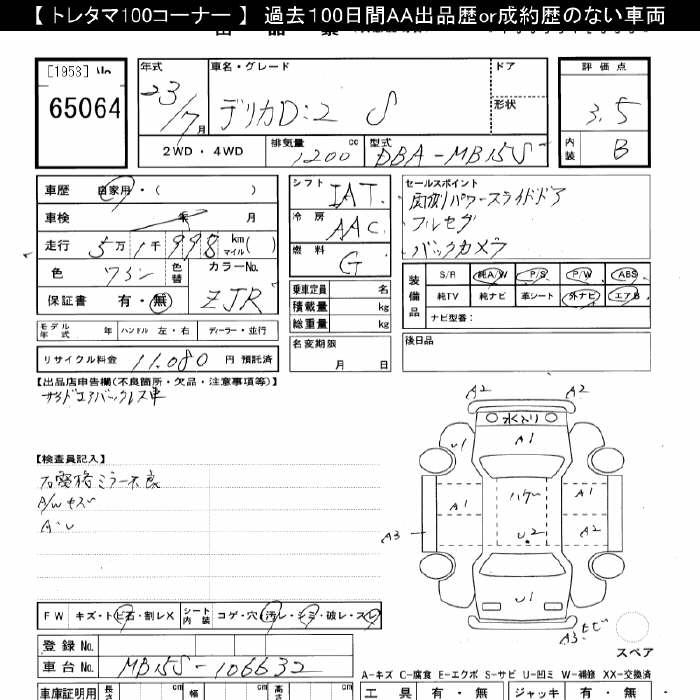 【 トレタマ100コーナー 】 過去100日間AA出品歴or成約歴のない車両
[1953]
65064
年式 車名・グレード ドア 評価点
23/7月 デリカD:2 S 形状 3.5
2WD・4WD 排気量 1200 cc 型式 DBA-MB15S 内装 B
車歴 自家用・( )
車検 年 月
走行 5万1千998 km マイル( )
色 ワイン 色替 カラーNo. ZJR
保証書 有・無
モデル年式 年 ハンドル 左・右 ディーラー・並行
リサイクル料金 11,080 円 預託済
シフト IAT
冷房 AAC
燃料 G
乗車定員 名
積載量 kg
総重量 kg
名変期限 月 日
セールスポイント
・両側パワースライドドア
・フルセグ
・バックカメラ
装備品 S/R 純A/W P/S P/W ABS
純TV 純ナビ 革シート 外ナビ エアB
ナビ型番：
後日品
【出品店申告欄(不良箇所・欠品・注意事項等)】
サイドエアバックレス車
【検査員記入】
右電格ミラー不良
A/Wキズ
A・U
A2 A2
水入り
U1 A1
A1 ハゲ A1
A3 U2 A2
U1
A3 ヒビ
スペア
FW キズ・トビ石・割レX シート内装 コゲ・穴・汚レ・シミ・破レ・スレ
登録No.
車台No. MB15S-106632
A-キズ C-腐食 E-エクボ S-サビ U-凹ミ W-補修 XX-交換済
車庫証明用 長さ cm 幅 cm 高さ cm 工具 有・無 ジャッキ 有・無